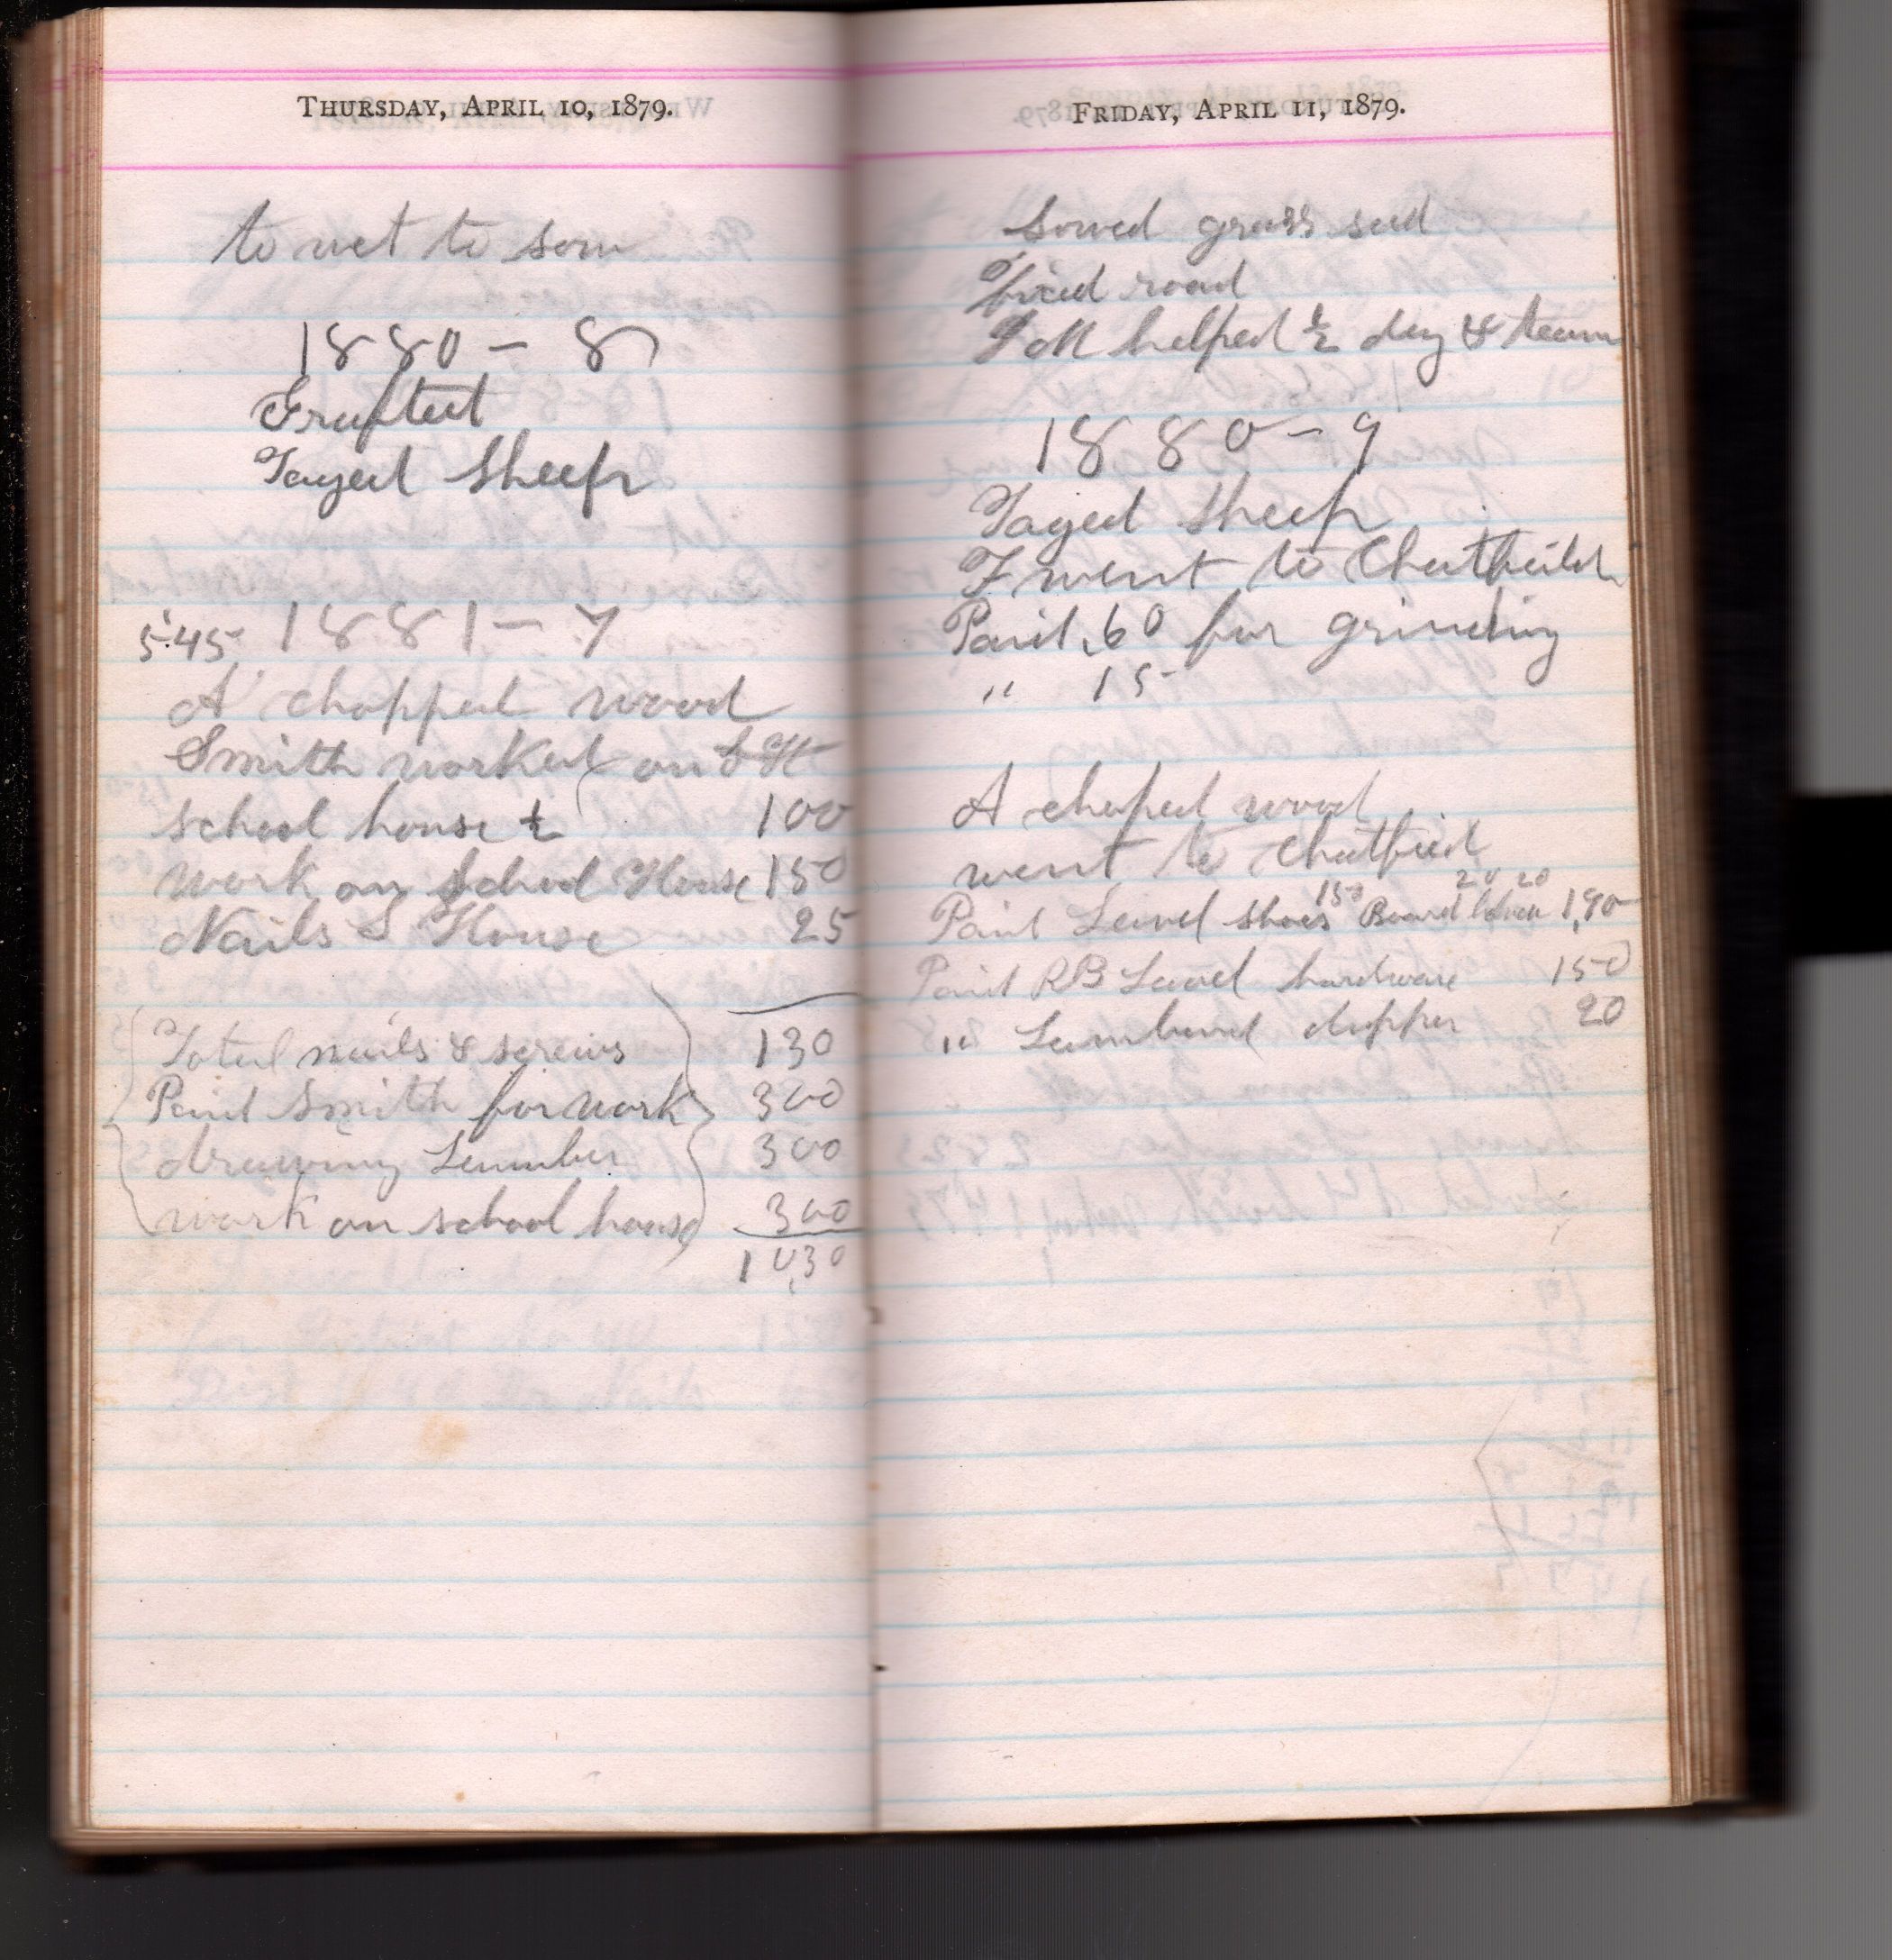 THURSDAY, APRIL 10, 1879.
to wet to sow
1880 - 8
Grafted
Taged Sheep
5.45 1881 - 7
A chopped wood
Smith worked on
school house ½ 100
work on School House 150
Nails S House 25
Total nails & screws 130
Paid Smith for work 300
drawing Lumber 300
work on school house 300
10,30
FRIDAY, APRIL 11, 1879.
Sowed grass seed
fixed road
J M helped ½ day & team
1880 - 9
Taged Sheep
F went to Chatfeild
Paid .60 for grinding
" 15
A choped wood
went to Chatfield
150 20 20
Paid Lovel shoes Board 1,90
Paid R B Lovel hardware 150
" Lumbard dipper 20